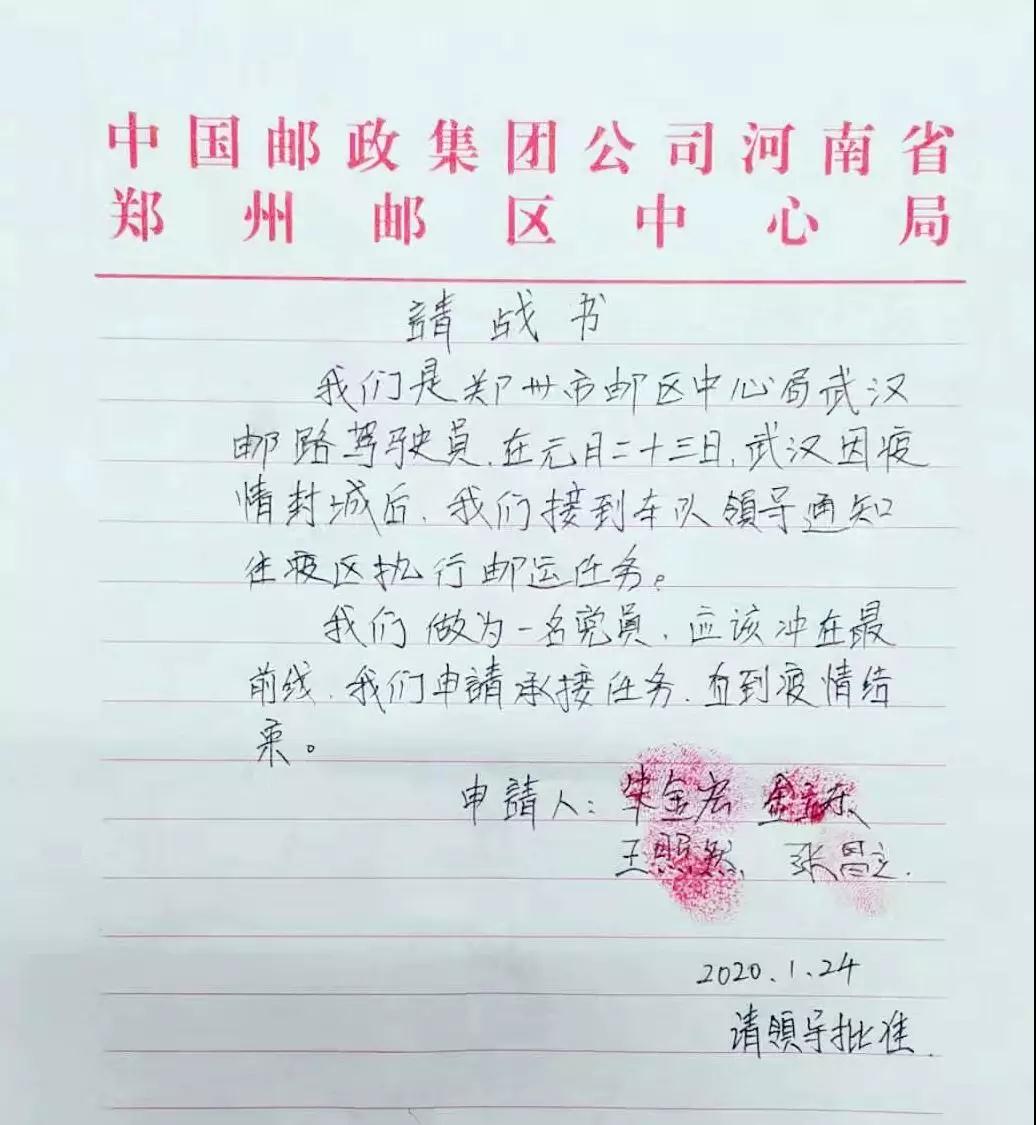 中国邮政集团公司河南省
郑州邮区中心局
請战书
我们是郑州市邮区中心局武汉
邮路驾驶員,在元月二十三日,武汉因疫
情封城后,我们接到车队領导通知
往疫区执行邮运任务。
我们做为一名党員,应该冲在最
前线,我们申請承接任务,直到疫情结
束。
申請人:牛金宏 金
王照然 张昌立.
2020.1.24
请領导批准.